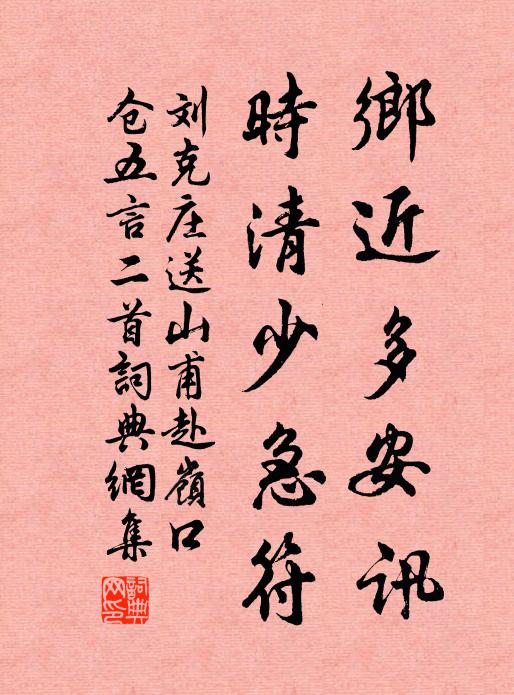 鄉近多安訊
時清少急符
刘克庄送山甫赴嶺口
仓五言二首詞典網集
詞典網印